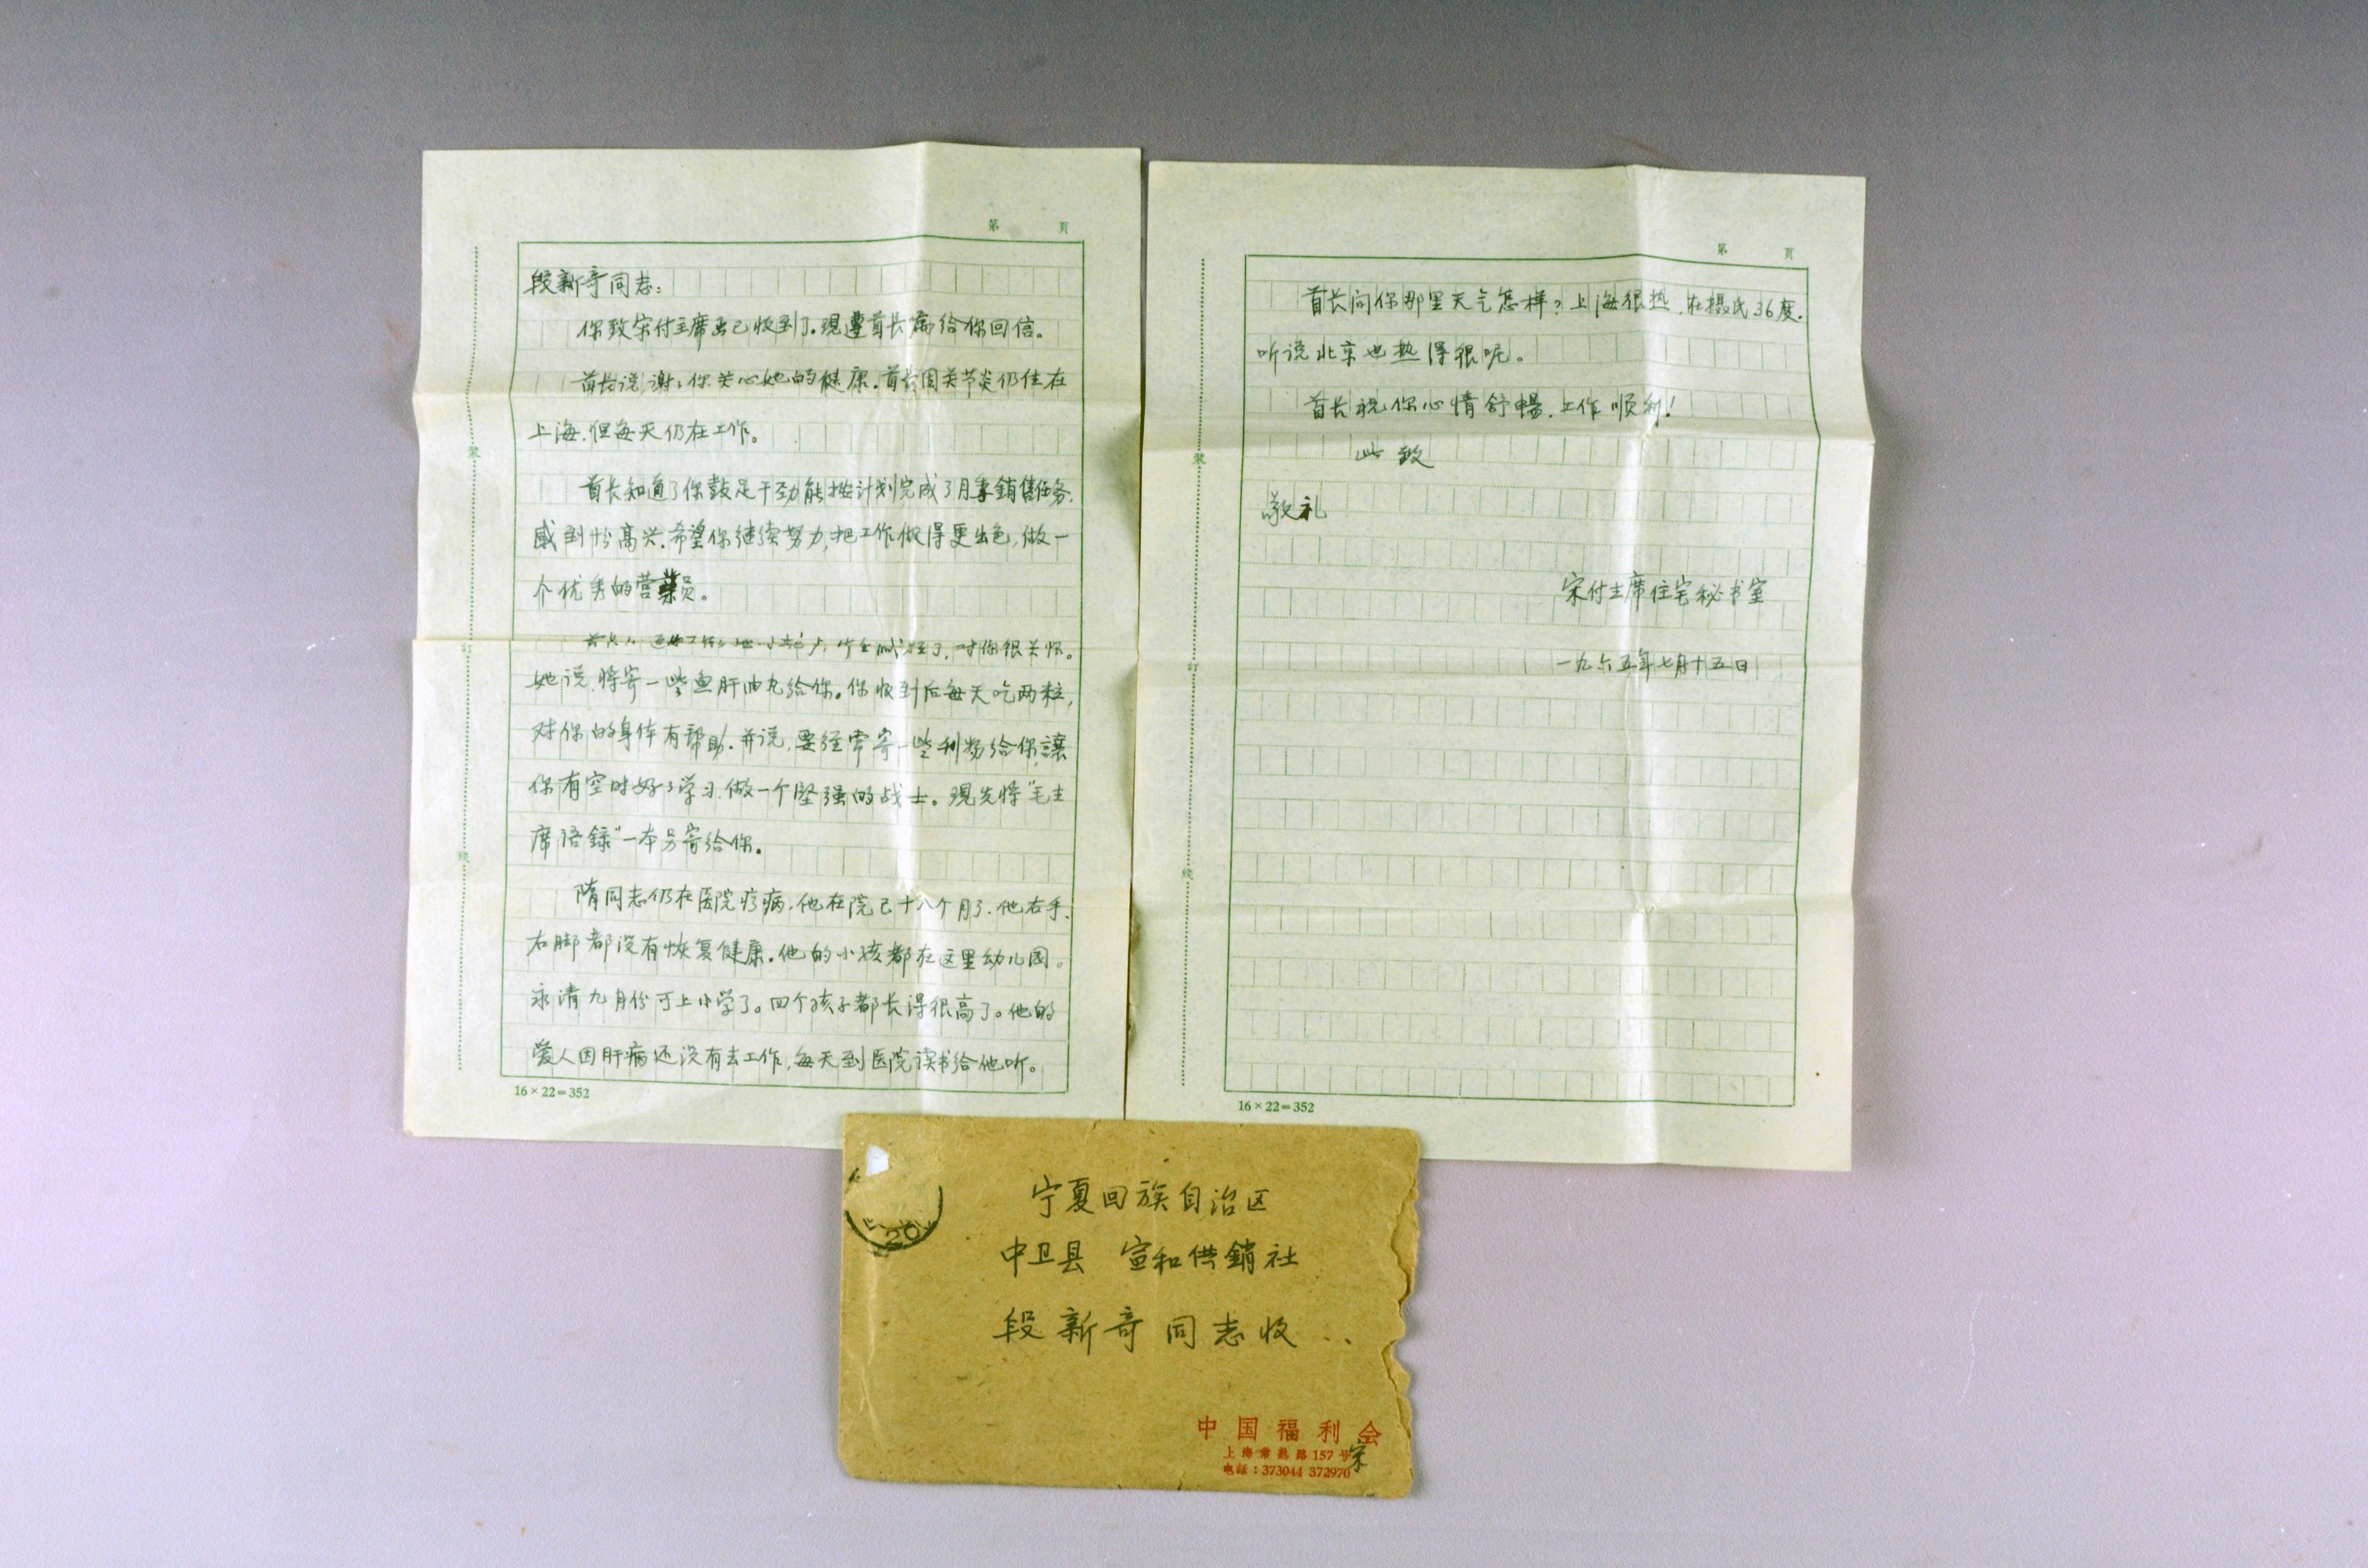 第 頁
段新奇同志：
你致宋付主席函已收到了。現遵首长嘱给你回信。
首长说，谢々你关心她的健康。首长因关节炎仍住在
上海，但每天仍在工作。
首长知道了你鼓足干劲能按计划完成了月季銷售任务，
感到十分高兴。希望你继续努力，把工作做得更出色，做一
个优秀的营業员。
对你很关怀。
她说，将寄一些鱼肝油丸给你。你收到后每天吃两粒，
对你的身体有帮助。并说，要经常寄一些刊物给你，讓
你有空时好々学习，做一个坚强的战士。現先将“毛主
席语録”一本另寄给你。
隋同志仍在医院疗病，他在院已十八个月了，他右手、
右脚都没有恢复健康。他的小孩都在这里幼儿园。
永清九月份可上小学了。四个孩子都长得很高了。他的
爱人因肝病还没有去工作，每天到医院读书给他听。
16×22=352
装
訂
线
第 頁
首长问你那里天气怎样？上海很热，在摄氏36度。
听说北京也热得很呢。
首长祝你心情舒暢，工作顺利！
此致
敬礼
宋付主席住宅秘书室
一九六五年七月十五日
16×22=352
装
訂
线
20
宁夏回族自治区
中卫县 宣和供銷社
段新奇同志收
中国福利会
上海常熟路157号
宋
电話：373044 372970